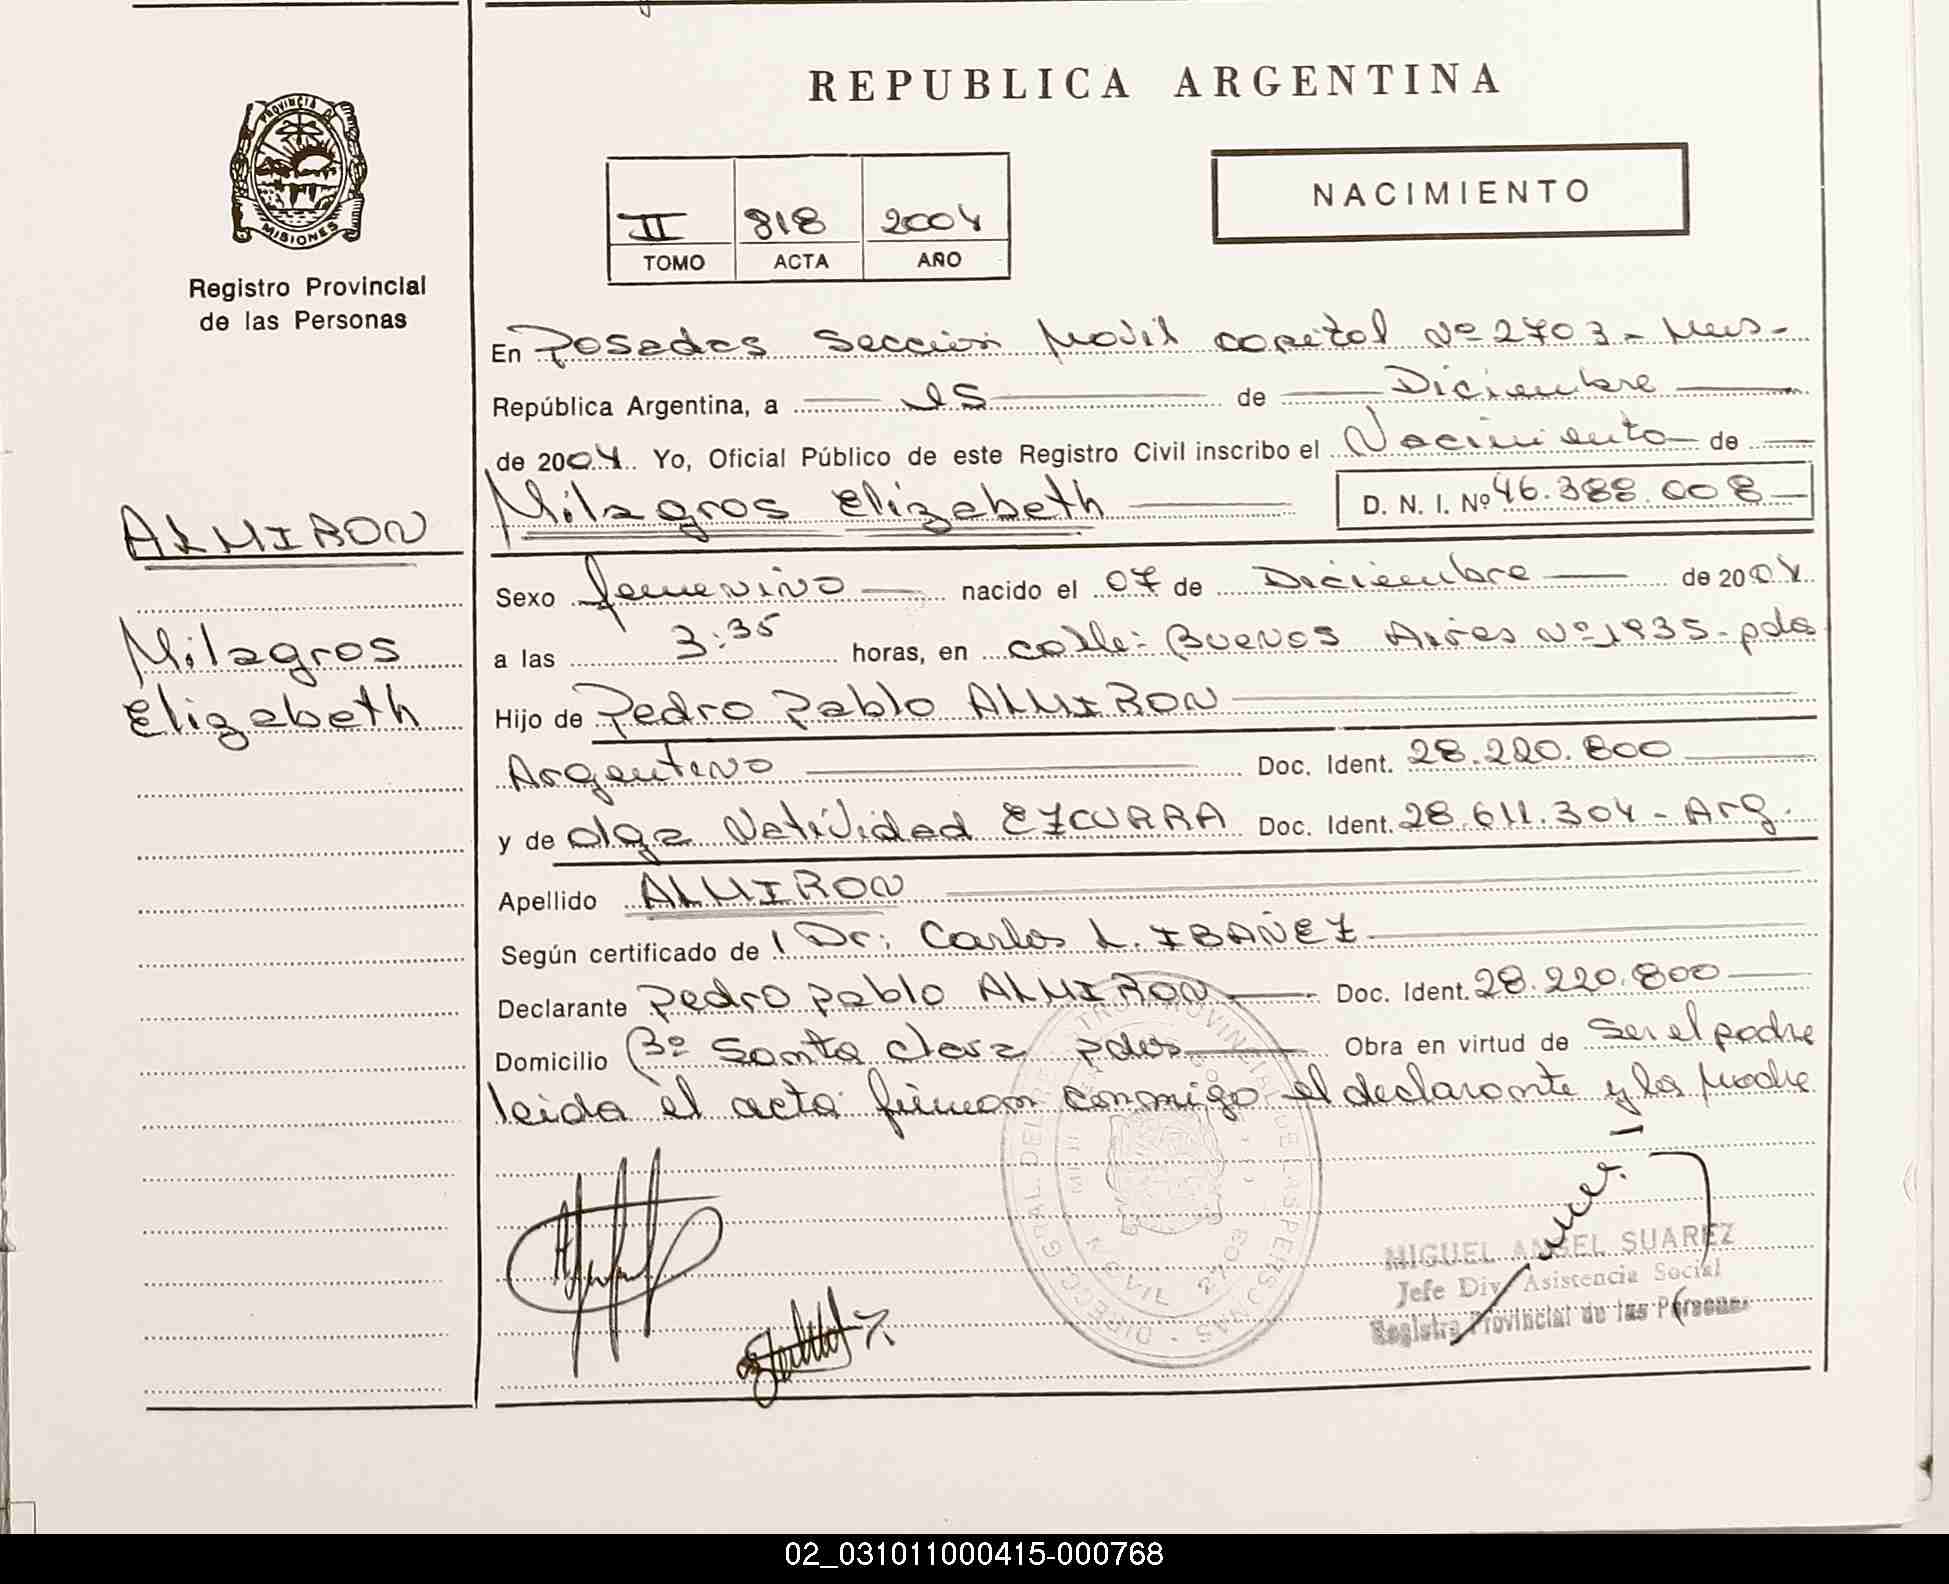 REPUBLICA ARGENTINA
PROVINCIA DE
MISIONES
Registro Provincial
de las Personas
NACIMIENTO
II 818 2004
TOMO ACTA AÑO
En Posadas Sección Movil capital Nº 2703 - Mnes-
República Argentina, a 15 de Diciembre
de 2004 Yo, Oficial Público de este Registro Civil inscribo el Nacimiento de
Milagros Elizabeth D. N. I. Nº 46.388.008
ALMIRON
Milagros
Elizabeth
Sexo femenino nacido el 07 de Diciembre de 2004
a las 3:35 horas, en calle: Buenos Aires Nº 1935- pdas
Hijo de Pedro Pablo ALMIRON
Argentino Doc. Ident. 28.220.800
y de Olga Natividad EZCURRA Doc. Ident. 28.611.304 - Arg.
Apellido ALMIRON
Según certificado de Dr: Carlos L. IBAÑEZ
Declarante Pedro pablo ALMIRON Doc. Ident. 28.220.800
Domicilio Bº Santa Clara pdas Obra en virtud de Ser el padre
leida el acta firman conmigo el declarante y la Madre
DIRECC. GRAL. DEL REGISTRO PROVINCIAL DE LAS PERSONAS
MOVIL 2703
MIGUEL ANGEL SUAREZ
Jefe Div. Asistencia Social
Registro Provincial de las Personas
02_031011000415-000768